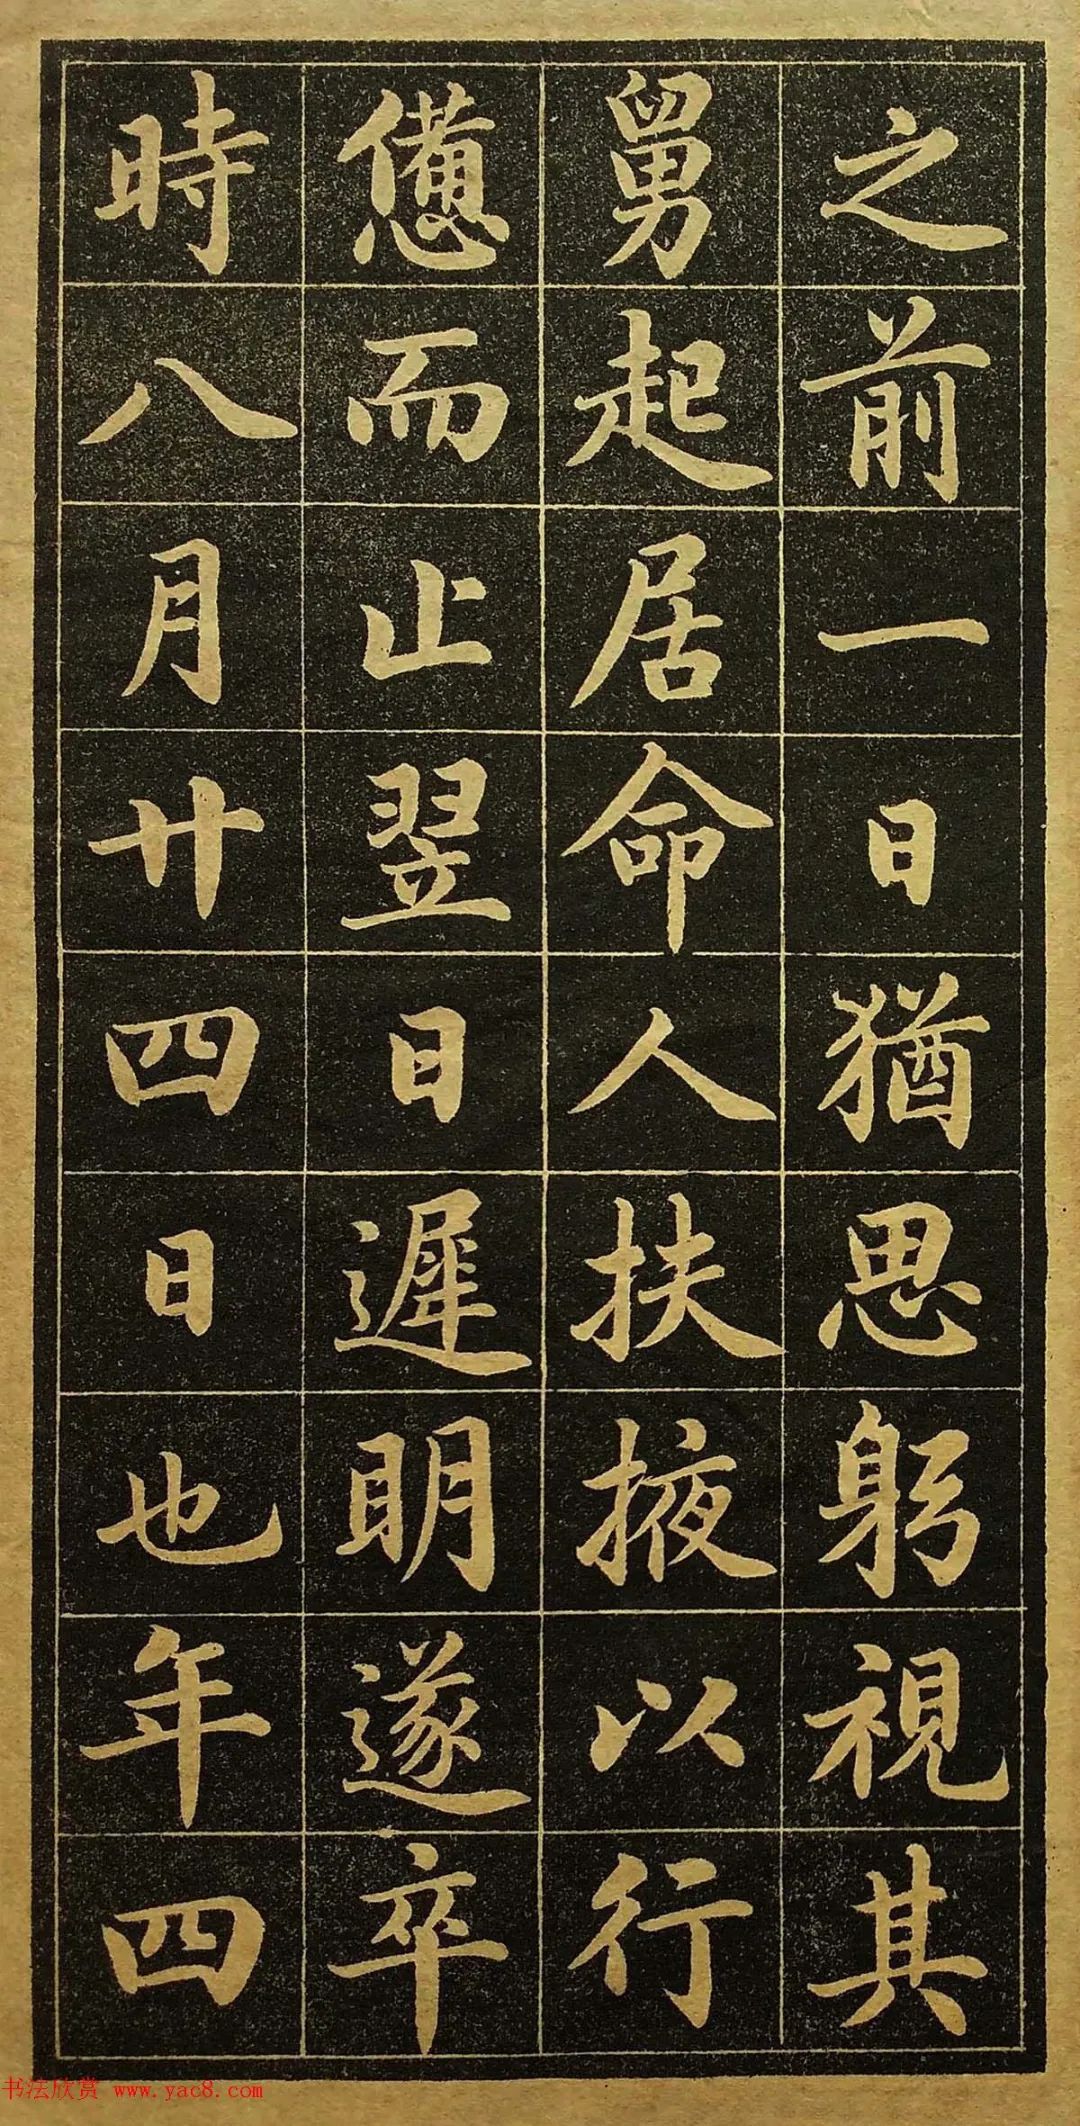 之前一日猶思躬視其
舅起居命人扶掖以行
憊而止翌日遲明遂卒
時八月廿四日也年四
书法欣赏 www.yac8.com